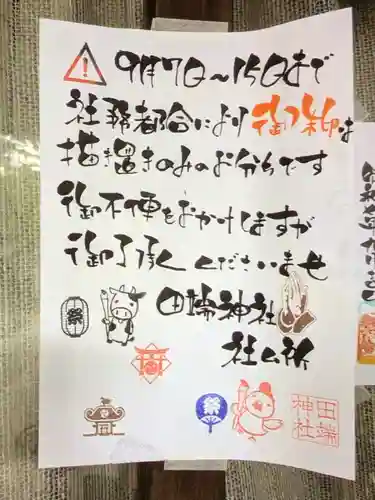 9月7日~15日まで
社務都合により御朱印は
描き置きのみのお分ちです
御不便をおかけしますが
御了承くださいませ
田端神社
社ム所
祭
祭
田端
神社